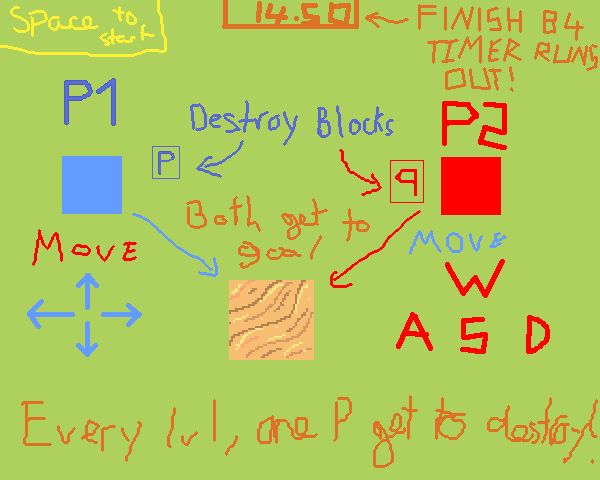 Space to start
14.50
FINISH B4
TIMER RUNS
OUT!
P1
Destroy Blocks
P2
P
q
Both get to
goal
MOVE
MOVE
W
A S D
Every lvl, one P get to destroy!